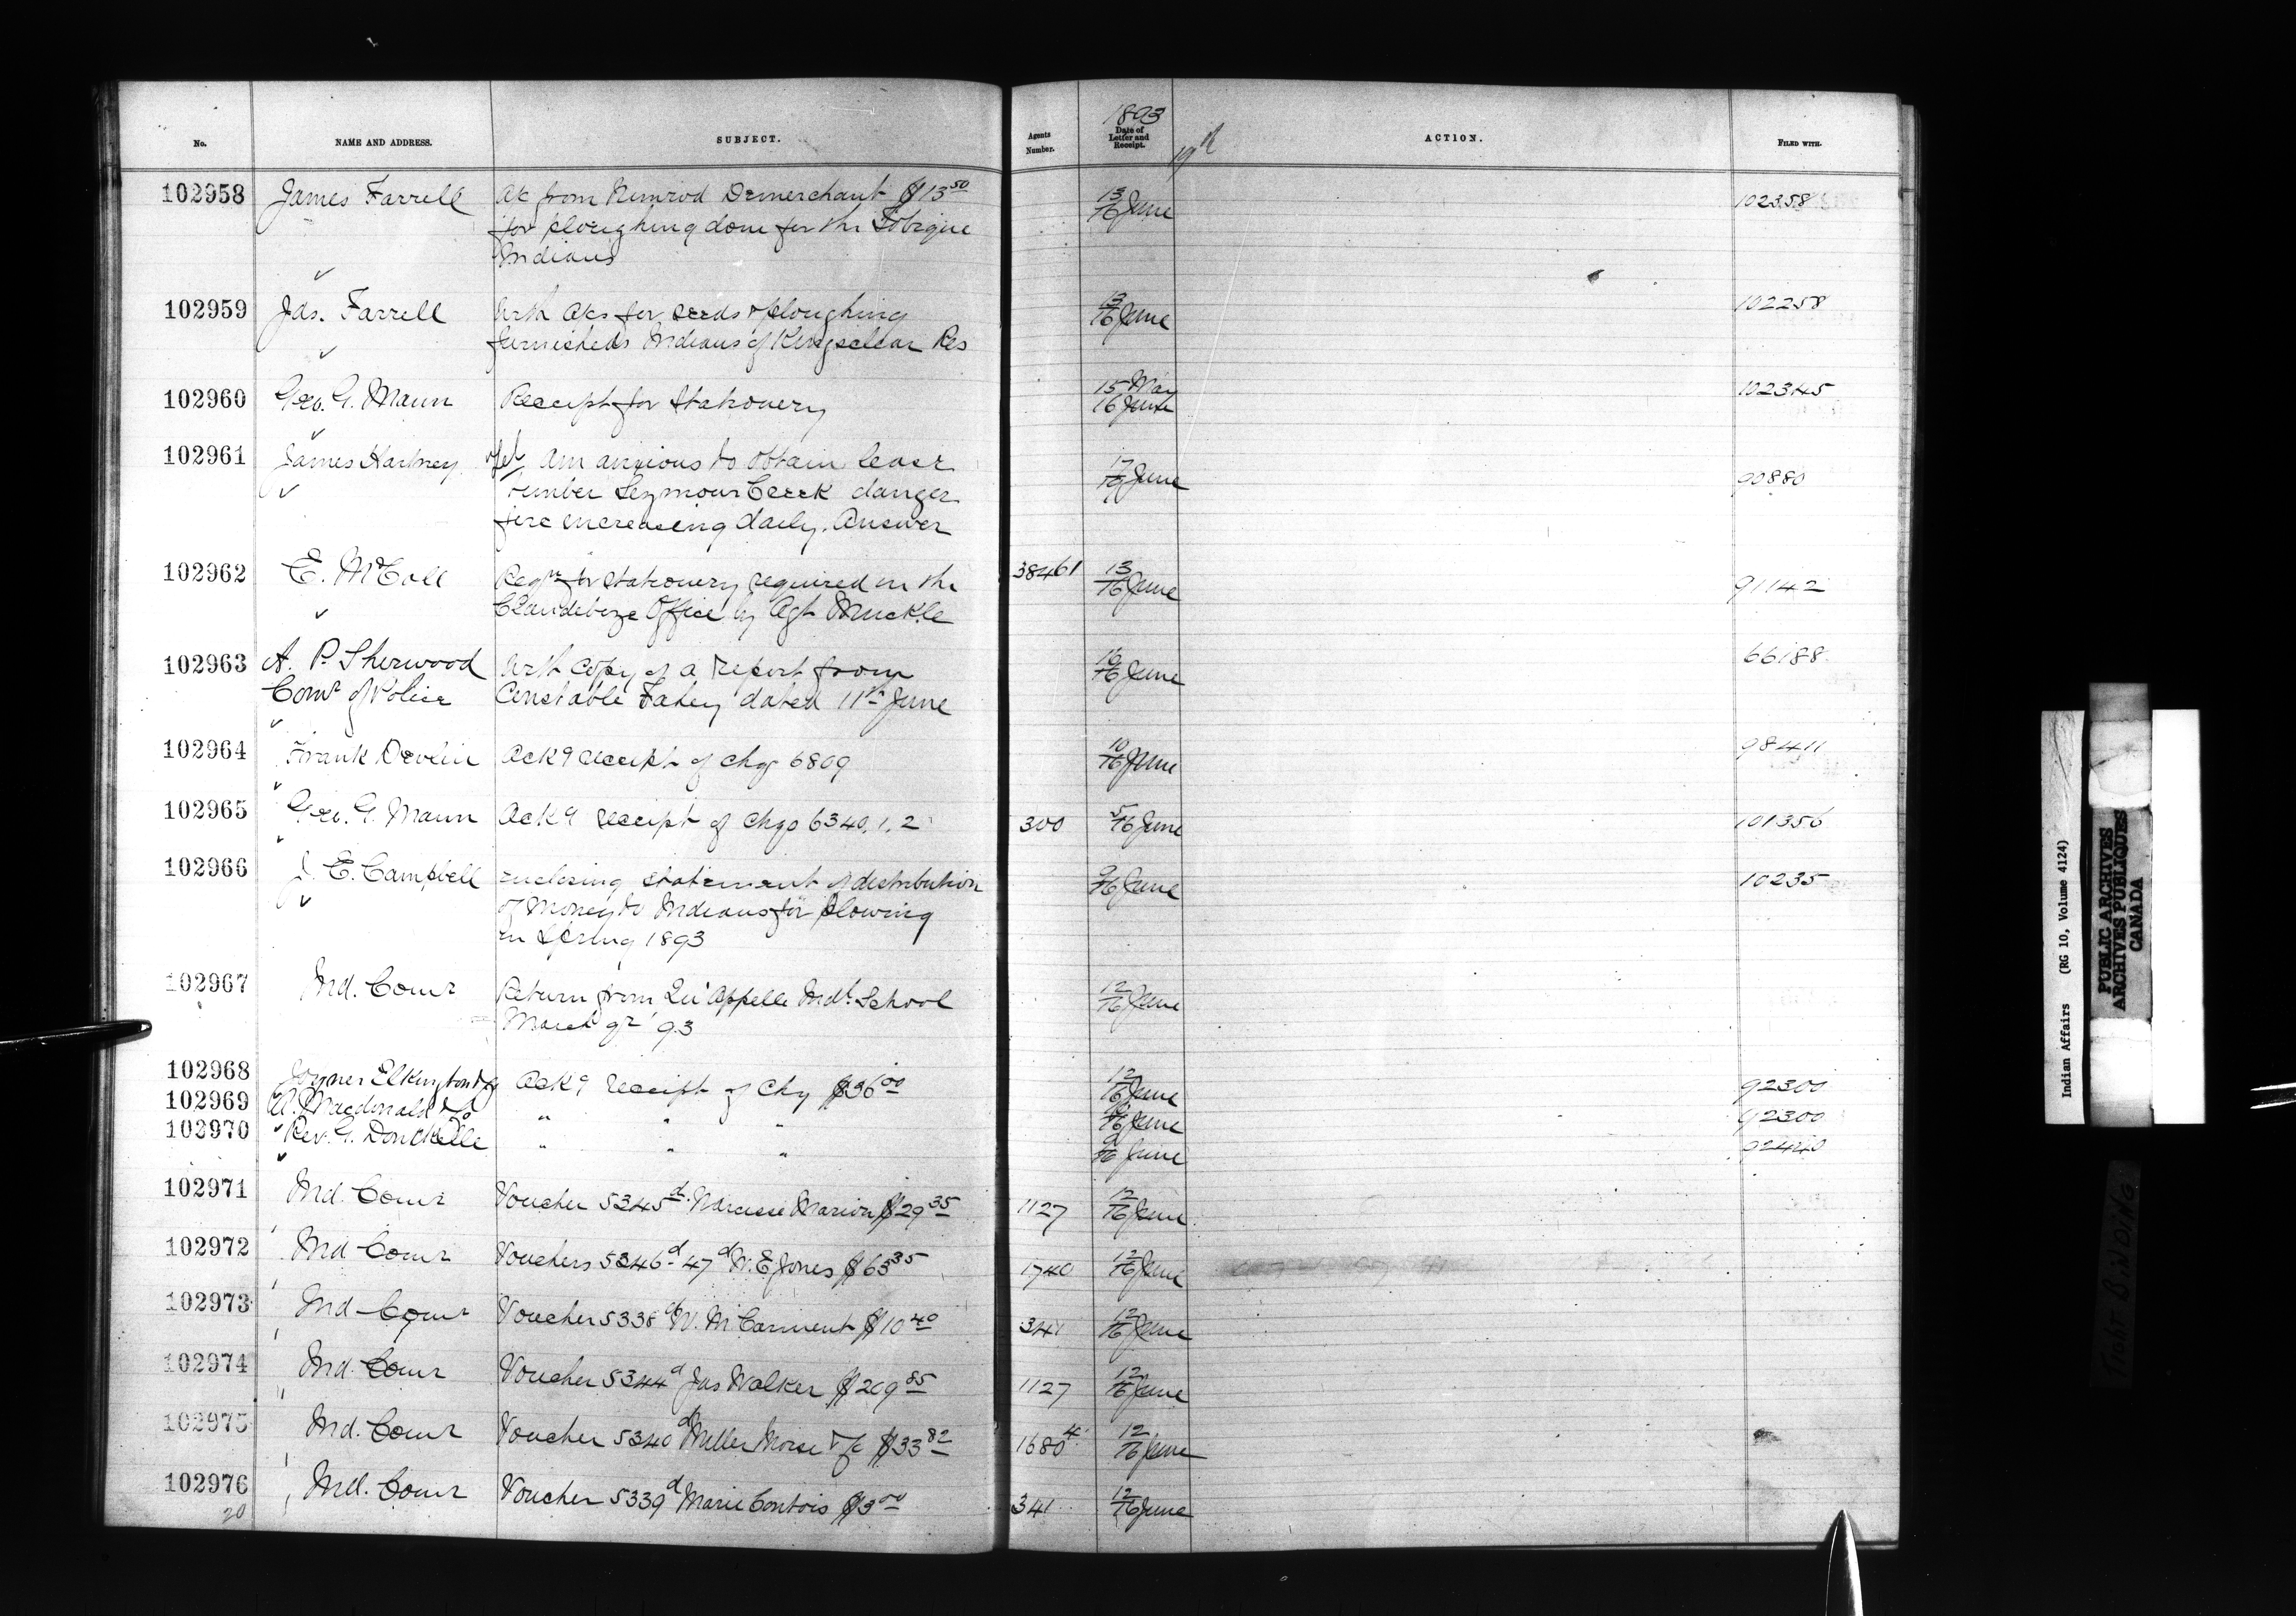 No. NAME AND ADDRESS. SUBJECT. Agents Number. 1893 Date of Letter and Receipt. ACTION. FILED WITH.
19th
102958 James Farrell Ac from Nimrod Demerchant $13.50 13/16 June 102358
for ploughing done for the Tobique
Indians
102959 Jas. Farrell With Acs for seeds & ploughing 13/16 June 102258
furnished Indians of Kingsclear Res
102960 Geo. G. Mann Receipt for Stationery 15 May 102345
16 June
102961 James Hartney Am anxious to obtain lease 17 June 90880
timber Seymour Creek danger
fire increasing daily. Answer
102962 E. McColl Reqn for stationery required in the 38461 13/16 June 91142
Clandeboye Office by Agt Muckle
102963 A. P. Sherwood With copy of a report from 16/16 June 66188
Comr of Police Constable Fahey dated 11th June
102964 Frank Devlin Ackg receipt of chq 6809 10/16 June 98411
102965 Geo. G. Mann Ackg receipt of Chqs 6340, 1, 2 300 5/16 June 101356
102966 J. E. Campbell enclosing statement of distribution 9/16 June 10235
of Money to Indians for plowing
in Spring 1893
102967 Ind. Comr Return from Qu'Appelle Indl. School 12/16 June
March qr '93
102968 Joyner Elkington & Co Ackg receipt of Chq $36.00 12/16 June 92300
102969 A. Macdonald & Co " " " 16 June 92300
102970 Rev. G. Donckele " " " 9/16 June 92440
102971 Ind. Comr Voucher 5345d. Narcisse Marion $29.35 1127 12/16 June
102972 Ind Comr Vouchers 5346d 47d W. E. Jones $65.35 1740 12/16 June
102973 Ind Comr Voucher 5338d W. McCarment $10.40 341 12/16 June
102974 Ind. Comr Voucher 5344d Jas Walker $209.85 1127 12/16 June
102975 Ind. Comr Voucher 5340d Miller Morse & Co $33.82 1680 4 12/16 June
102976 Ind. Comr Voucher 5339d Marie Contois $3.00 341 12/16 June
20
Indian Affairs (RG 10, Volume 4124)
PUBLIC ARCHIVES
ARCHIVES PUBLIQUES
CANADA
TIGHT BINDING